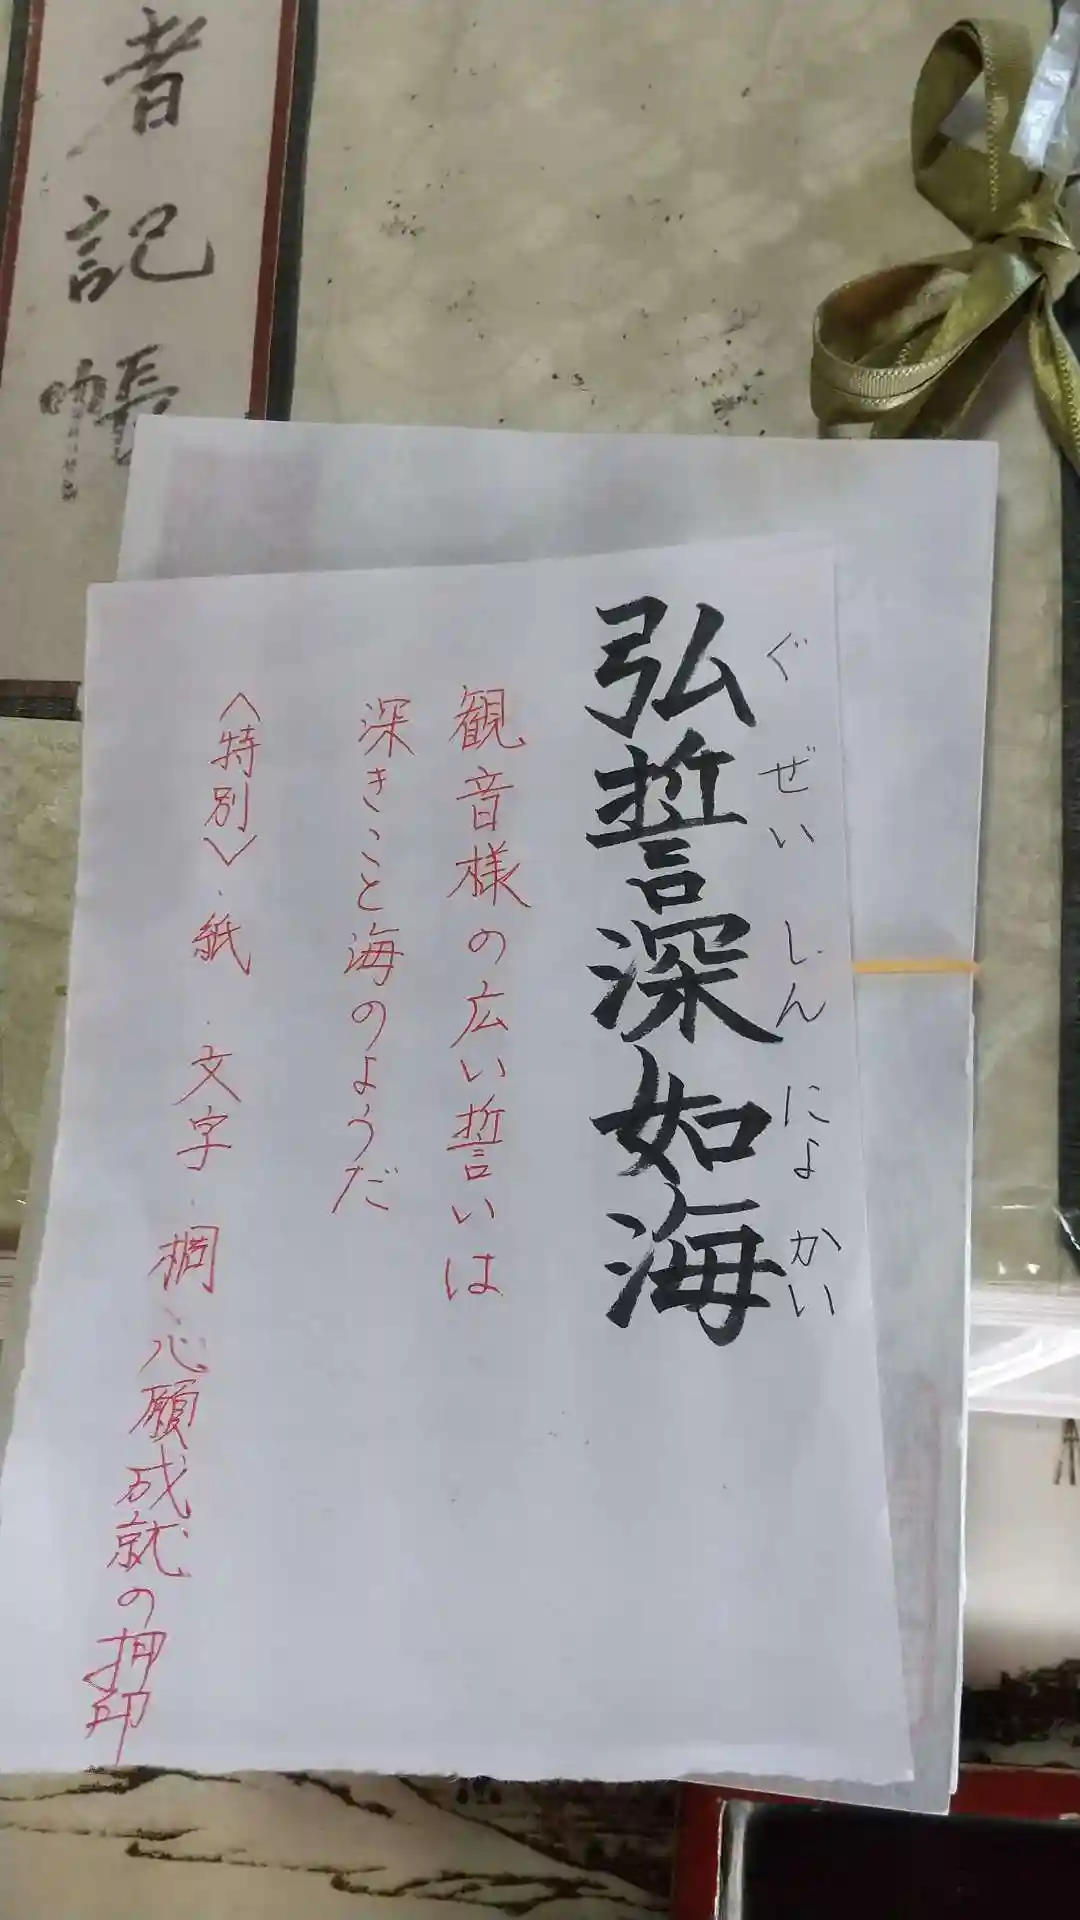 弘誓深如海
ぐぜいしんにょかい
観音様の広い誓いは
深きこと海のようだ
〈特別〉・紙・文字・桐・心願成就の押印
者記帳